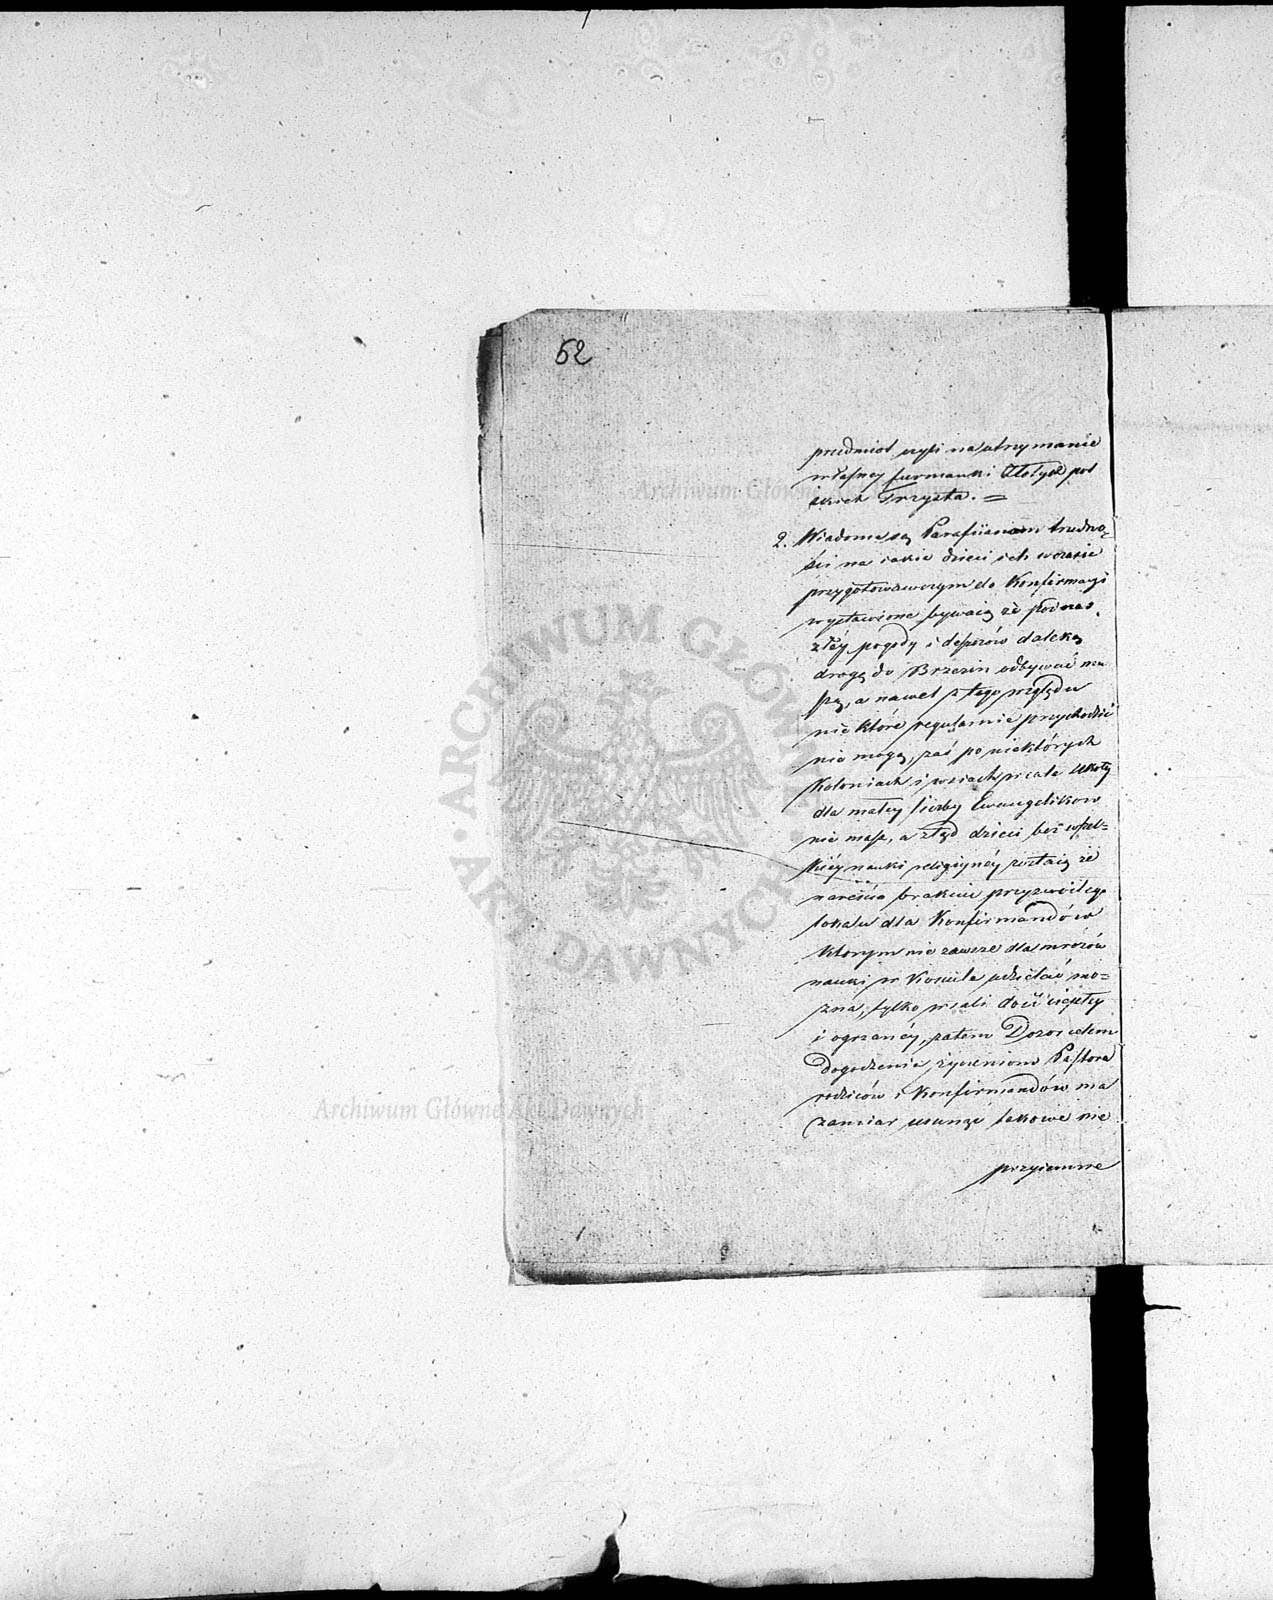 52
przedmiot czyli na utrzymanie
własney furmanki Złotych pol
skich Trzysta. =
2. Wiadome są Parafiianom trudno-
ści na iakie dzieci ich w czasie
przygotowawczym do Konfirmacyi
wystawione bywaią że podczas
złéy pogody i deszczów daleką
drogę do Brzezin odbywać mu
szą, a nawet z tego względu
nie które regularnie przychodzić
nie mogą, zaś po niektórych
Koloniach i wsiach wcale szkoły
dla małey liczby Ewangelikow
nie masz, a ztąd dzieci bez wszel=
kiéy nauki religiynéy zostaią że
nareście brakuie przyzwoitego
lokalu dla Konfirmandów
ktorym nie zawsze dla mrozów
nauki w Kościele udzielać mo=
zna, tylko w sali dość ciepłey
i ogrzanéy, zatem Dozor celem
Dogodzenia życzeniom Pastora
rodziców i Konfirmandów ma
zamiar usunąć takowe nie
przyiemne
ARCHIWUM GŁÓWNE AKT DAWNYCH
Archiwum Główne
Archiwum Główne Akt Dawnych